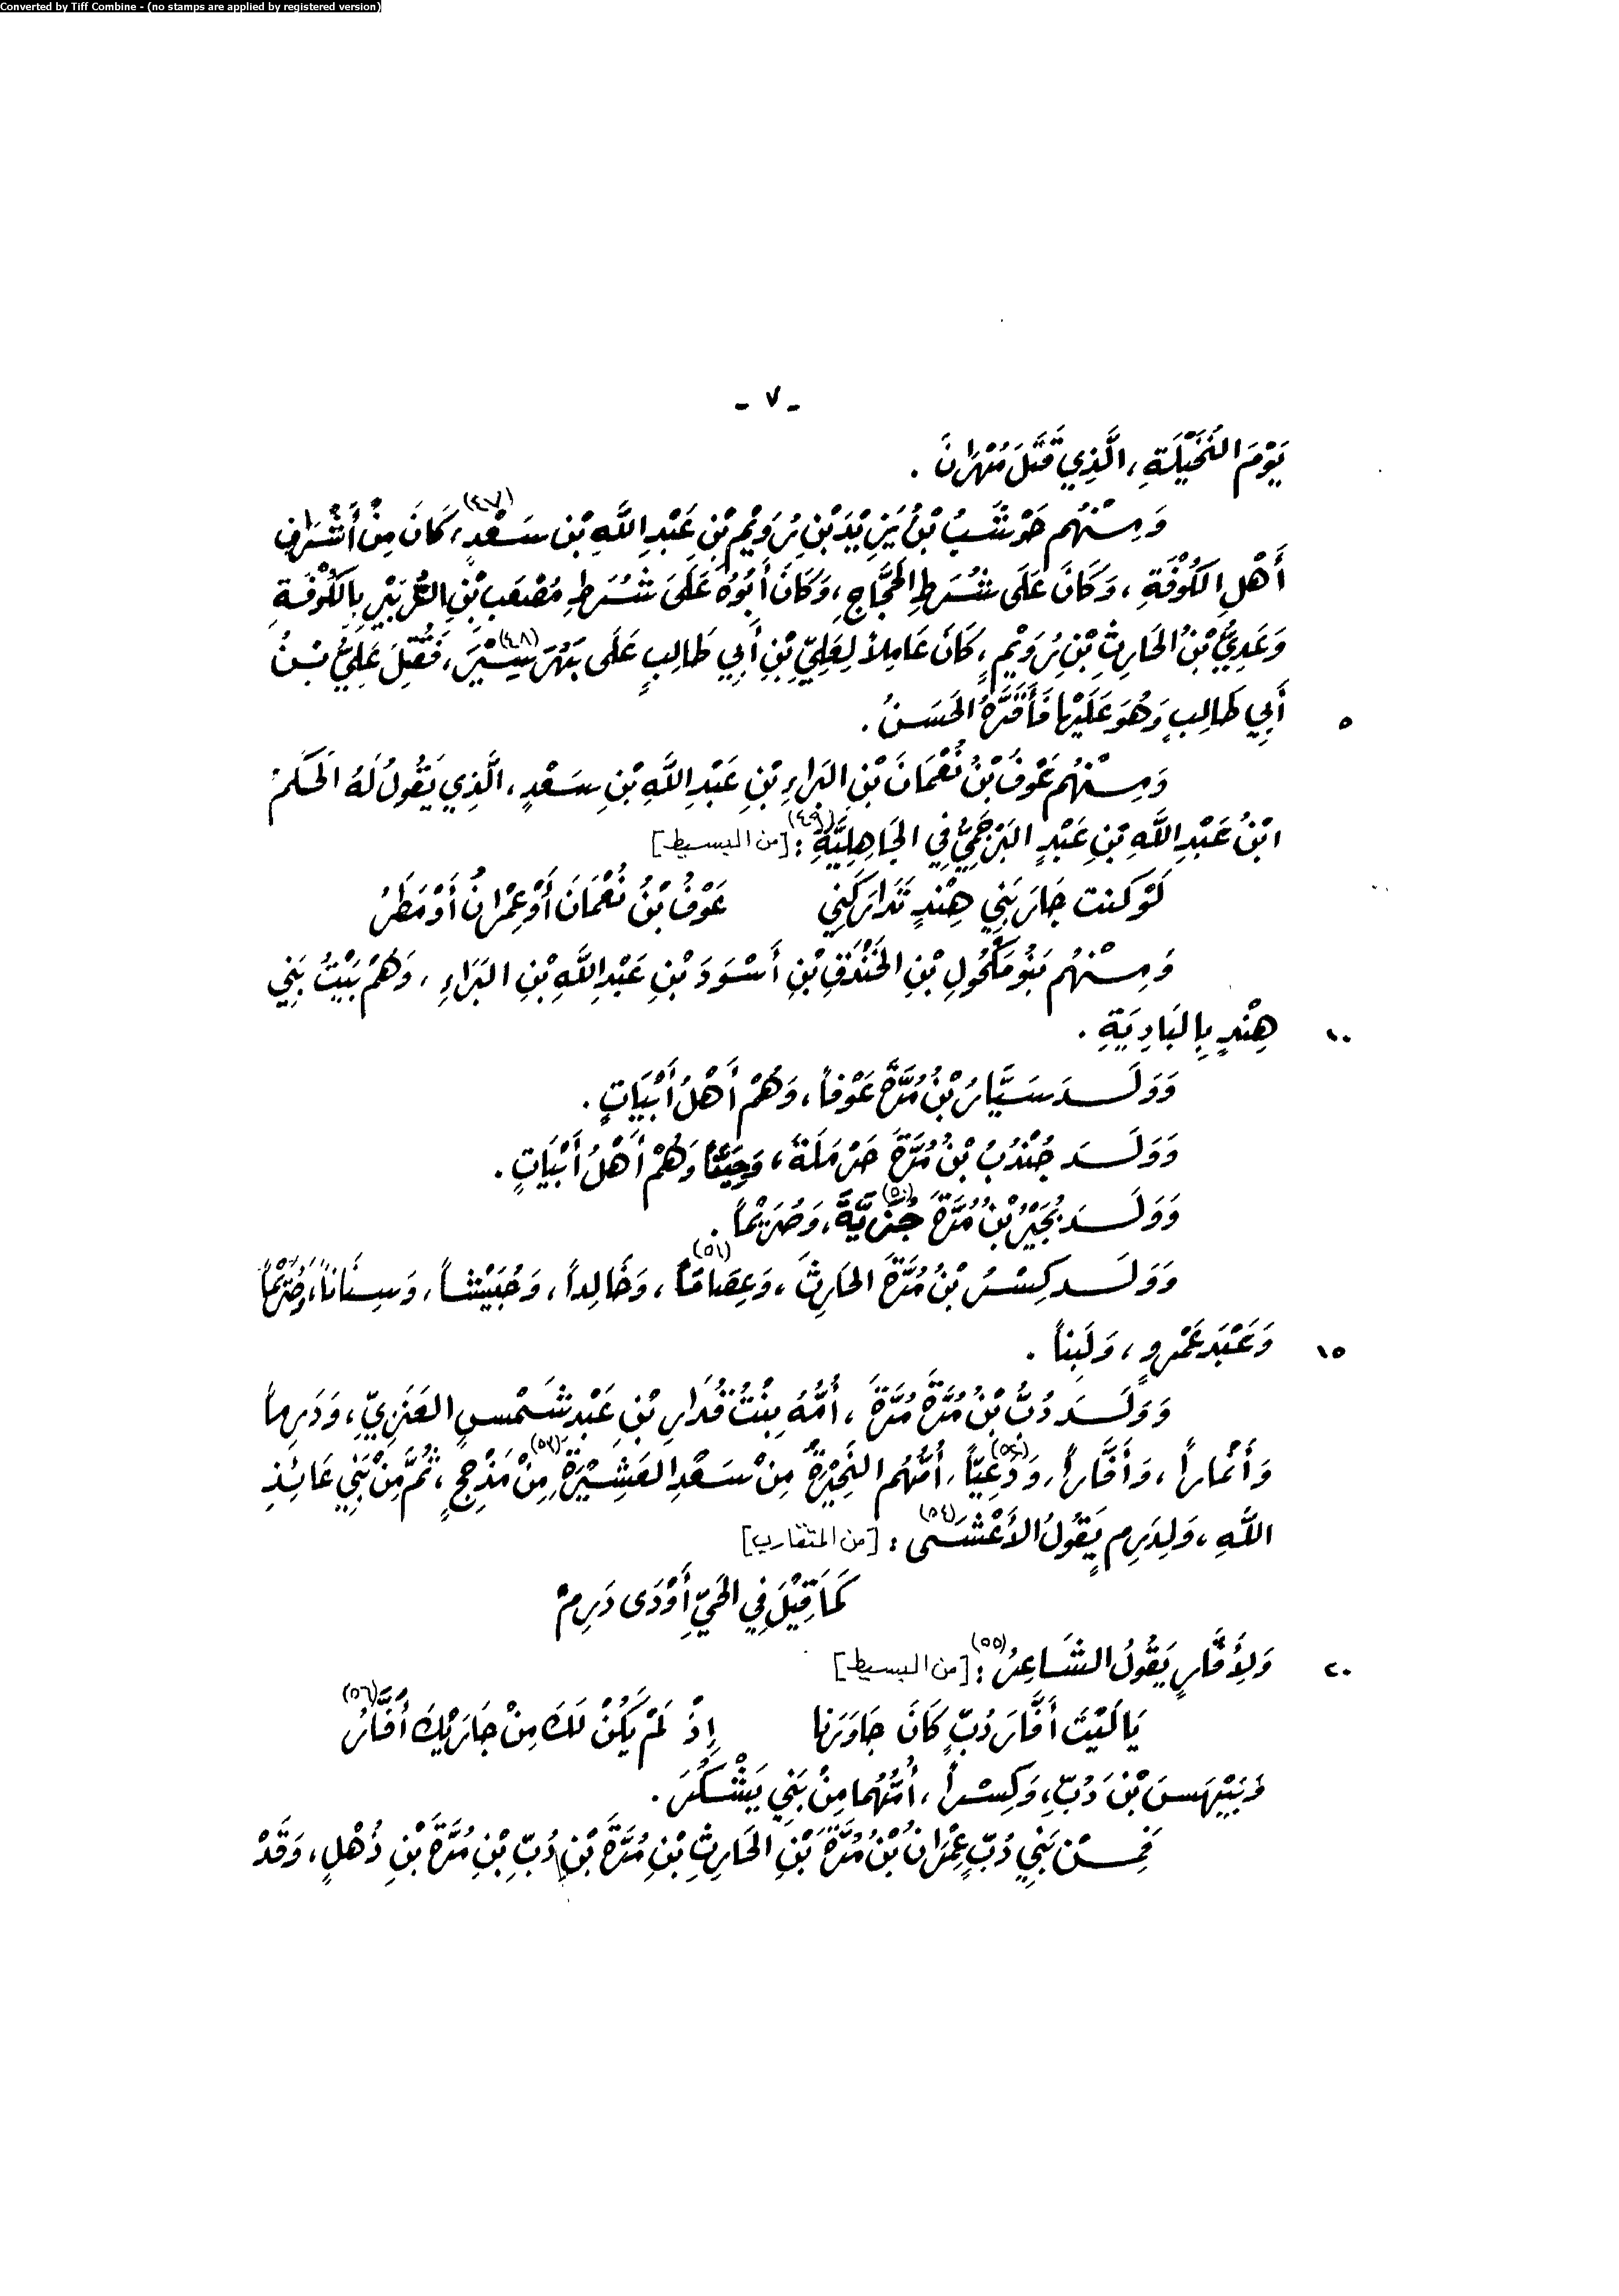 Converted by Tiff Combine - (no stamps are applied by registered version)
- ٧ -
يَوْمَ النُّخَيْلَةِ، الَّذِي قَتَلَ مِهْرَانَ .
وَمِنْهُم حَوْشَبُ بْنُ يَزِيْدَ بْنِ رُوَيْمِ بْنِ عَبْدِ اللَّهِ بْنِ سَعْدٍ(٤٧)، كَانَ مِنْ أَشْرَافِ
أَهْلِ الكُوْفَةِ، وَكَانَ عَلَى شُرَطِ الحَجَّاجِ، وَكَانَ أَبُوْهُ عَلَى شُرَطِ مُصْعَبِ بْنِ الزُّبَيْرِ بِالكُوْفَةِ
وَعَدِيُّ بْنُ الحَارِثِ بْنِ رُوَيْمٍ، كَانَ عَامِلاً لِعَلِيِّ بْنِ أَبِي طَالِبٍ عَلَى بَهُرَسِيْرَ(٤٨)، فَقُتِلَ عَلِيُّ بْنُ
٥ أَبِي طَالِبٍ وَهُوَ عَلَيْهَا فَأَقَرَّهُ الحَسَنُ .
وَمِنْهُم عَوْفُ بْنُ نُعْمَانَ بْنِ البَرَاءِ بْنِ عَبْدِ اللَّهِ بْنِ سَعْدٍ، الَّذِي يَقُولُ لَهُ الحَكَمُ
ابْنُ عَبْدِ اللَّهِ بْنِ عَبْدٍ البُرْجُمِيُّ فِي الجَاهِلِيَّةِ(٤٩) : [من البسيط]
لَوْ كنت جَارَ بَنِي هِنْدٍ تَدَارَكَنِي عَوْفُ بْنُ نُعْمَانَ أَوْ عِمْرَانُ أَوْ مَطَرُ
وَمِنْهُم بَنُو مَكْحُولِ بْنِ الخَنْدَقِ بْنِ أَسْوَدَ بْنِ عَبْدِ اللَّهِ بْنِ البَرَاءِ، وَهُمْ بَيْتُ بَنِي
١٠ هِنْدٍ بِالبَادِيَةِ .
وَوَلَدَ سَيَّارُ بْنُ مُرَّةَ عَوْفاً، وَهُمْ أَهْلُ أَبْيَاتٍ .
وَوَلَدَ جُنْدُبُ بْنُ مُرَّةَ حَرْمَلَةَ، وَهُمْ أَهْلُ أَبْيَاتٍ .
وَوَلَدَ بُجَيْرُ بْنُ مُرَّةَ (٥٠)، وَصُرَيْماً .
وَوَلَدَ كِسْرُ بْنُ مُرَّةَ الحَارِثَ، وَعِصَاماً(٥١)، وَخَالِداً، وَحُبَيْشاً، وَسِنَاناً،
١٥ وَعَبْدَ عَمْرٍو، وَلَبِناً .
وَوَلَدَ دُبُّ بْنُ مُرَّةَ مُرَّةَ، أُمُّهُ بِنْتُ قُدَارِ بْنِ عَبْدِ شَمْسٍ العَنَزِيِّ، وَدَرِماً
وَأَنْمَاراً، وَأَفَّاراً، وَدُعِيّاً(٥٢)، أُمُّهُم النَّجِيْرَةُ مِنْ سَعْدِ العَشِيْرَةِ(٥٣) مِنْ مَذْحِجٍ، ثُمَّ مِنْ بَنِي عَائِذِ
اللَّهِ، وَلِدَرِمٍ يَقُولُ الأَعْشَى(٥٤) : [من المتقارب]
كَمَا قِيْلَ فِي الحَيِّ أَوْدَى دَرِمْ
٢٠ وَلِأَفَّارٍ يَقُولُ الشَّاعِرُ(٥٥) : [من البسيط]
يَا لَيْتَ أَفَّارَ دُبٍّ كَانَ جَاوَرَنَا إِذْ لَمْ يَكُنْ لَكَ مِنْ جَارَيْكَ أَفَّارُ(٥٦)
وَبَيْهَسَ بْنَ دُبٍّ، وَكِسْراً، أُمُّهُمَا مِنْ بَنِي يَشْكُرَ .
فَمِنْ بَنِي دُبٍّ عِمْرَانُ بْنُ مُرَّةَ بْنِ الحَارِثِ بْنِ مُرَّةَ بْنِ دُبِّ بْنِ مُرَّةَ بْنِ ذُهْلٍ، وَقَدْ